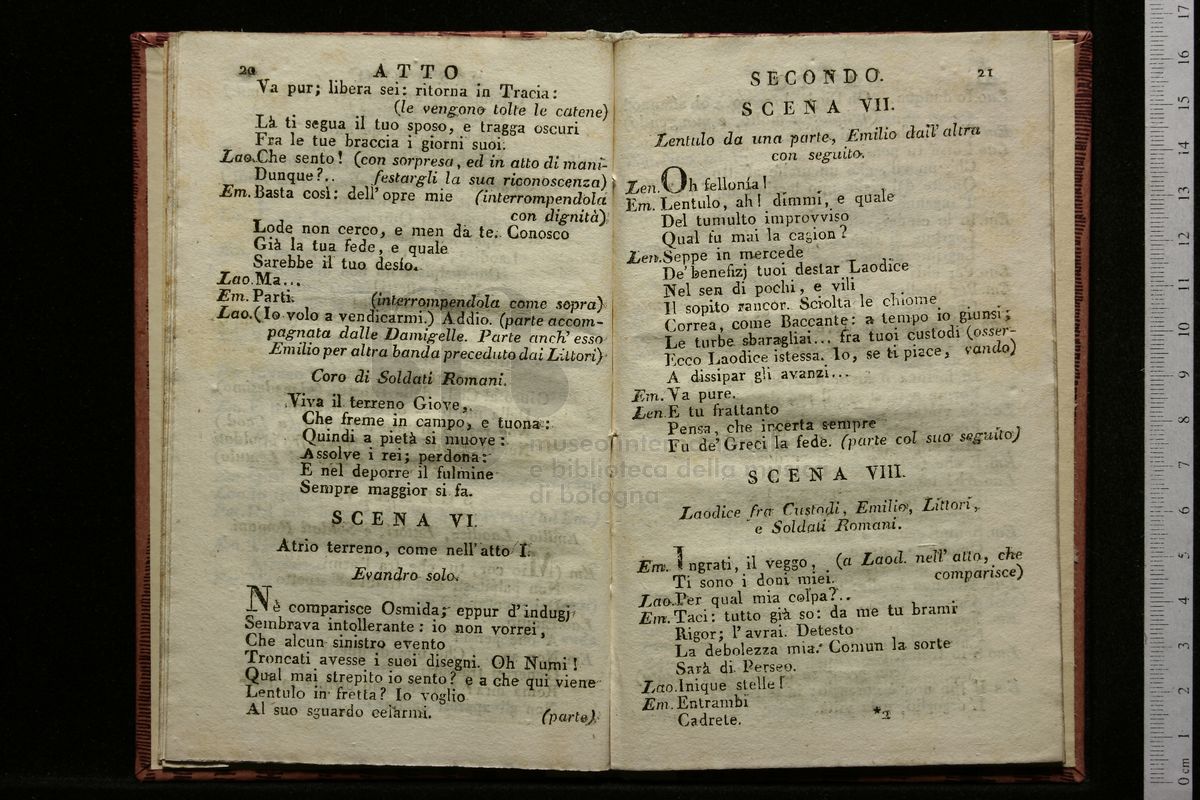 20 ATTO
Va pur; libera sei: ritorna in Tracia:
(le vengono tolte le catene)
Là ti segua il tuo sposo, e tragga oscuri
Fra le tue braccia i giorni suoi.
Lao. Che sento! (con sorpresa, ed in atto di mani-
Dunque?.. festargli la sua riconoscenza)
Em. Basta così: dell' opre mie (interrompendola
con dignità)
Lode non cerco, e men da te. Conosco
Già la tua fede, e quale
Sarebbe il tuo desio.
Lao. Ma...
Em. Parti. (interrompendola come sopra)
Lao. (Io volo a vendicarmi.) Addio. (parte accom-
pagnata dalle Damigelle. Parte anch' esso
Emilio per altra banda preceduto dai Littori)
Coro di Soldati Romani.
Viva il terreno Giove,
Che freme in campo, e tuona:
Quindi a pietà si muove:
Assolve i rei; perdona:
E nel deporre il fulmine
Sempre maggior si fa.
SCENA VI.
Atrio terreno, come nell' atto I.
Evandro solo.
Nè comparisce Osmida; eppur d' indugj
Sembrava intollerante: io non vorrei,
Che alcun sinistro evento
Troncati avesse i suoi disegni. Oh Numi!
Qual mai strepito io sento? e a che qui viene
Lentulo in fretta? Io voglio
Al suo sguardo celarmi. (parte)
SECONDO. 21
SCENA VII.
Lentulo da una parte, Emilio dall' altra
con seguito.
Len. Oh fellonía!
Em. Lentulo, ah! dimmi, e quale
Del tumulto improvviso
Qual fu mai la cagion?
Len. Seppe in mercede
De' benefizj tuoi destar Laodice
Nel sen di pochi, e vili
Il sopito rancor. Sciolta le chiome
Correa, come Baccante: a tempo io giunsi;
Le turbe sbaragliai... fra tuoi custodi (osser-
Ecco Laodice istessa. Io, se ti piace, vando)
A dissipar gli avanzi...
Em. Va pure.
Len. E tu frattanto
Pensa, che incerta sempre
Fu de' Greci la fede. (parte col suo seguito)
SCENA VIII.
Laodice fra Custodi, Emilio, Littori,
e Soldati Romani.
Em. Ingrati, il veggo, (a Laod. nell' atto, che
Ti sono i doni miei. comparisce)
Lao. Per qual mia colpa?..
Em. Taci: tutto già so: da me tu brami
Rigor; l' avrai. Detesto
La debolezza mia. Comun la sorte
Sarà di Perseo.
Lao. Inique stelle!
Em. Entrambi
Cadrete. *2
museo internazionale
e biblioteca della musica
di bologna
17
16
15
14
13
12
11
10
9
8
7
6
5
4
3
2
1
0 cm